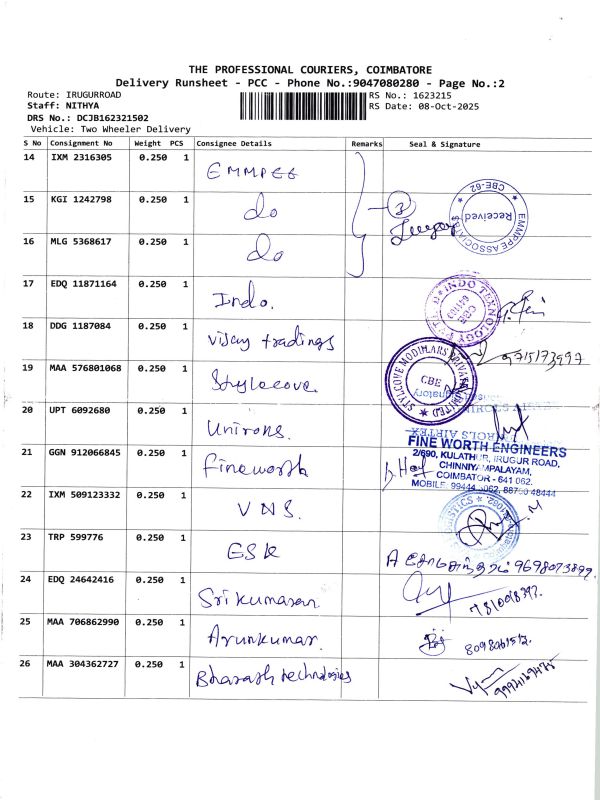 THE PROFESSIONAL COURIERS, COIMBATORE
Delivery Runsheet - PCC - Phone No.:9047080280 - Page No.:2
Route: IRUGURROAD
RS No.: 1623215
Staff: NITHYA
RS Date: 08-Oct-2025
DRS No.: DCJB162321502
Vehicle: Two Wheeler Delivery
S No Consignment No Weight PCS Consignee Details Remarks Seal & Signature
14 IXM 2316305 0.250 1 EMMPEE
15 KGI 1242798 0.250 1 do
3
CBE-62 Received EMMPPE ASSOCIATES
16 MLG 5368617 0.250 1 do
17 EDQ 11871164 0.250 1 Indo.
INDO TEXNOLOGY
18 DDG 1187084 0.250 1 Vijay tradings
9715173997
19 MAA 576801068 0.250 1 Stylecove
STYLCOVE MODULARS PRIVATE LIMITED CBE
20 UPT 6092680 0.250 1 Unirols.
UNIROLS AIRTEX
21 GGN 912066845 0.250 1 Fineworth
FINE WORTH ENGINEERS
2/690, KULATHUR, IRUGUR ROAD,
CHINNIYAMPALAYAM,
COIMBATOR - 641 062.
MOBILE: 99444 5062, 88700 48444
22 IXM 509123332 0.250 1 VNS.
23 TRP 599776 0.250 1 ESK
9698073899
24 EDQ 24642416 0.250 1 Srikumaran
25 MAA 706862990 0.250 1 Arunkumar.
26 MAA 304362727 0.250 1 Bharath technologies